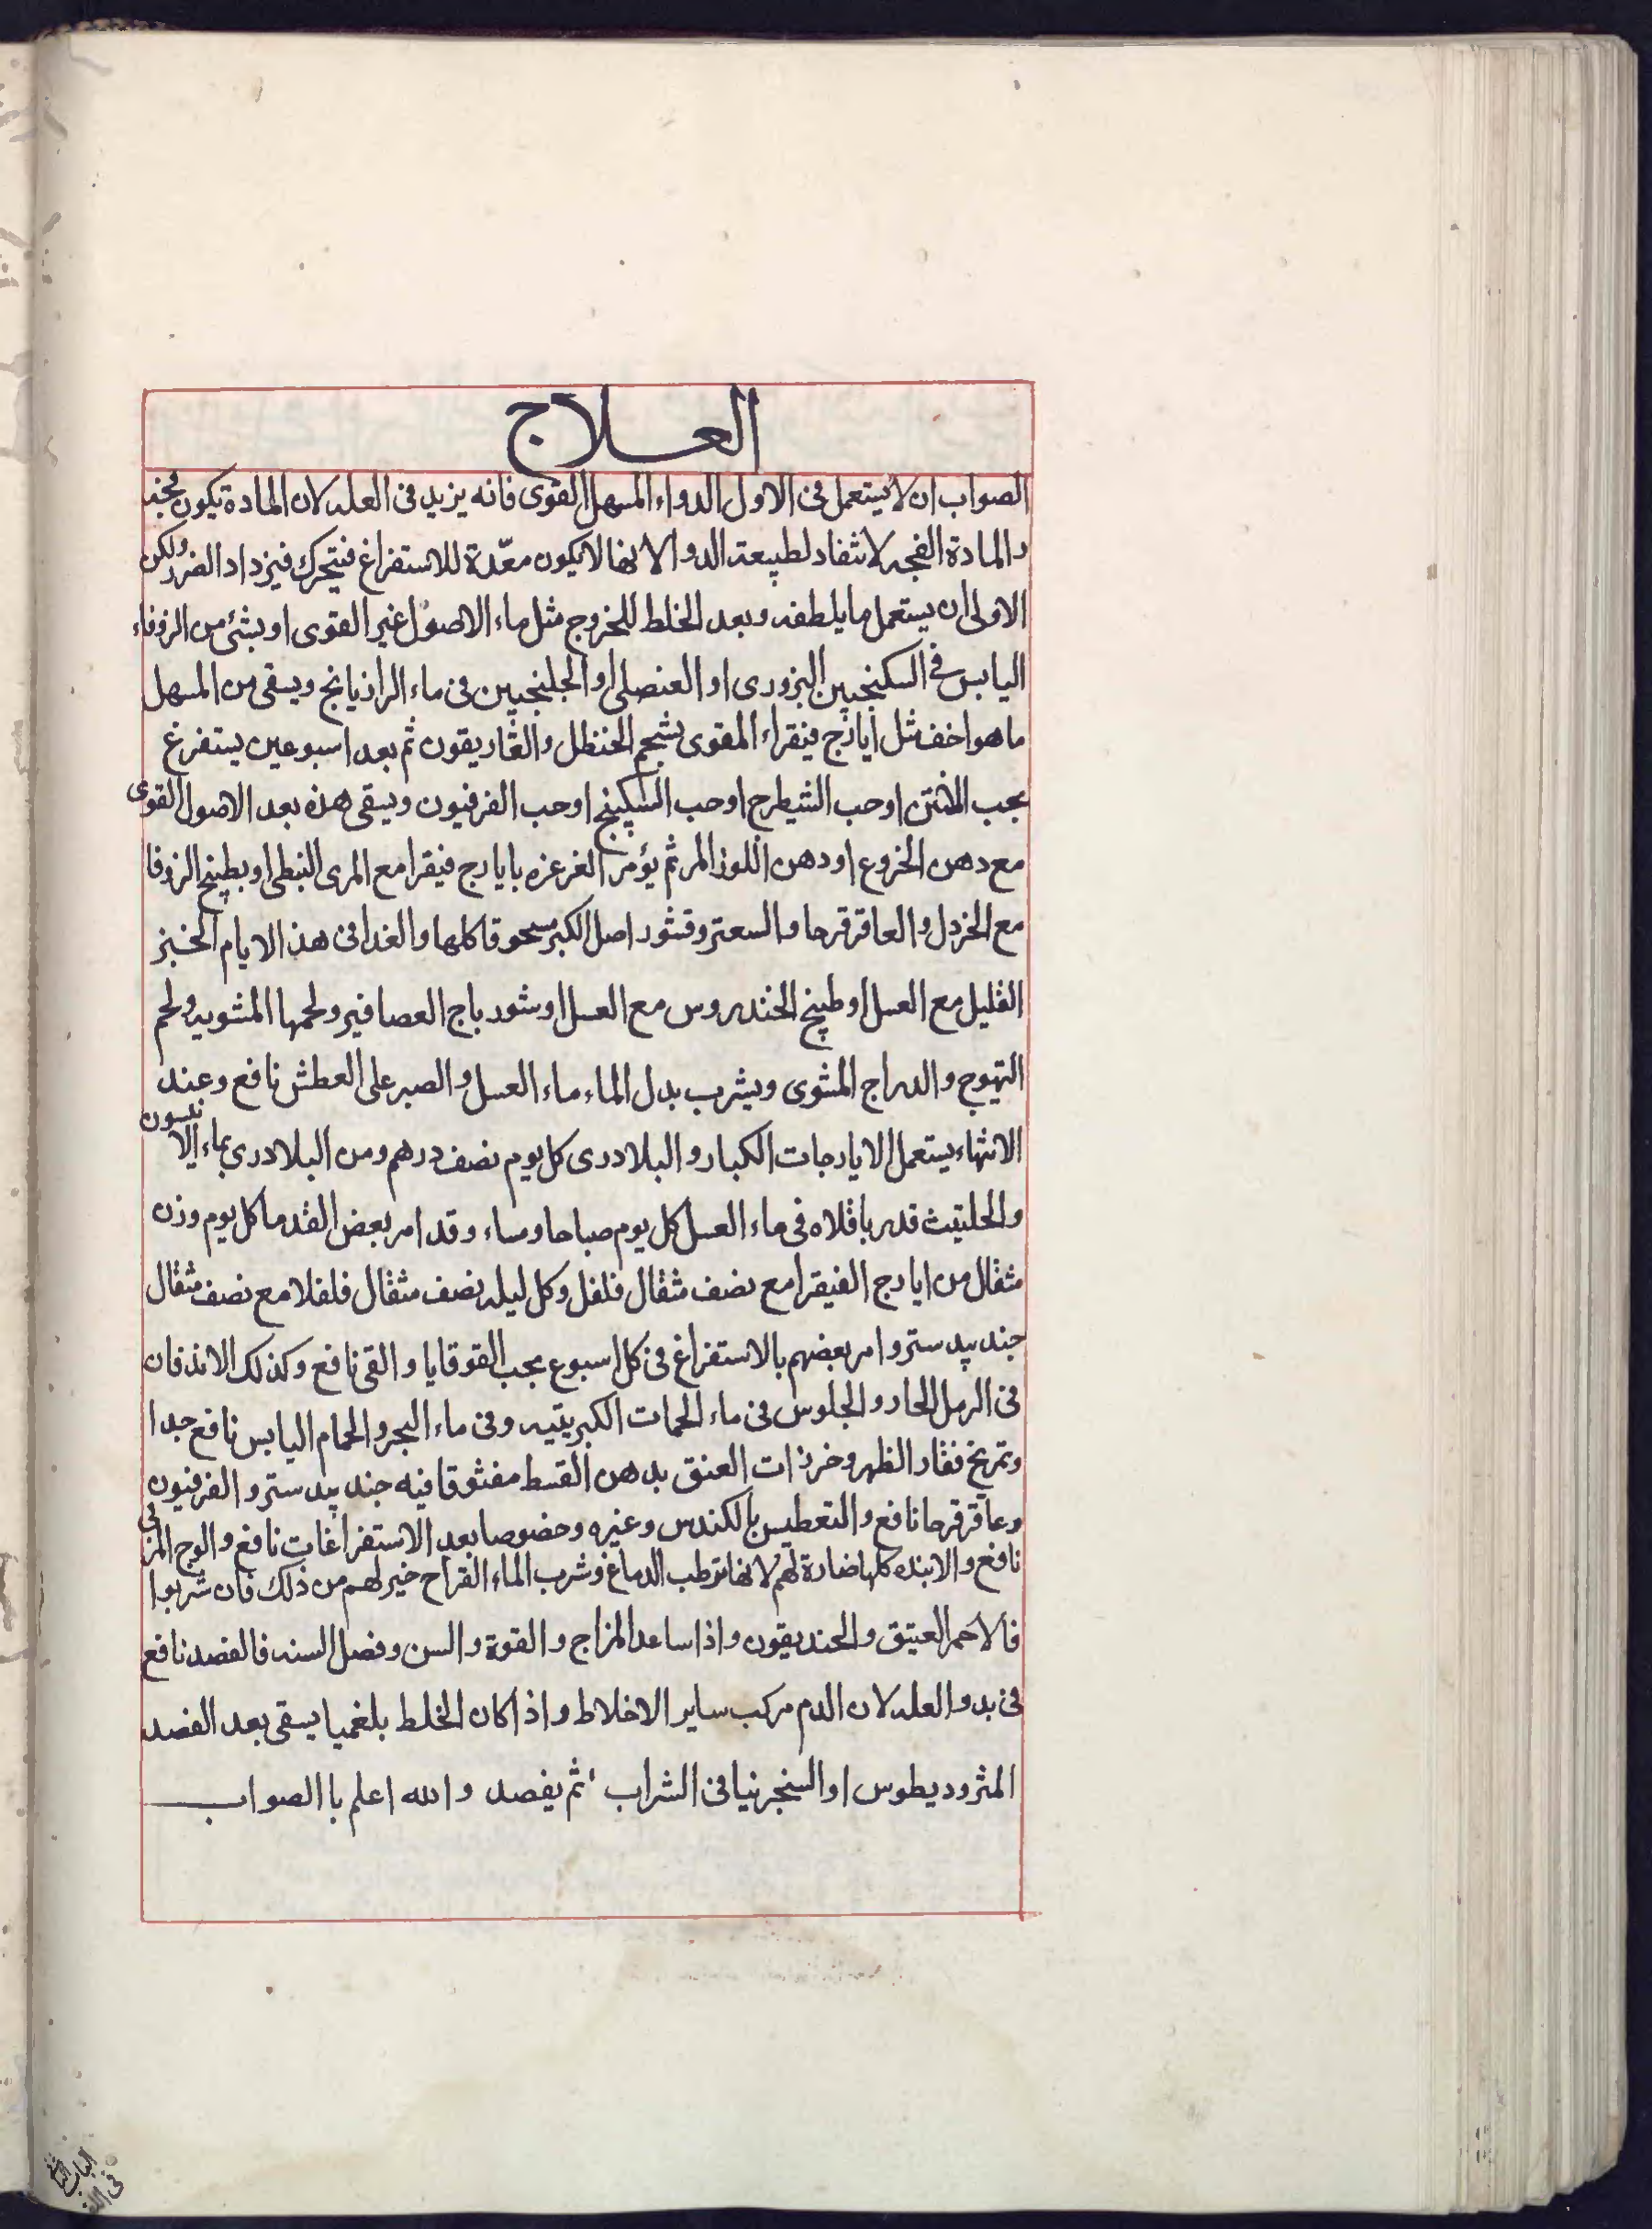 العلاج
الصواب ان لا يستعمل فى الاول الدواء المسهل القوى فانه يزيد فى العله لان المادة يكون فجه
والمادة الفجه لا تنقاد لطبيعة الدوا لانها لا يكون معدّة للاستفراغ فتتحرك فيزداد الضرر ولكن
الاولى ان يستعمل ما يلطفه ويعد الخلط للخروج مثل ماء الاصول غير القوى او بشئ من الزوفاء
اليابس فى السكنجبين البزورى او العنصلى او الجلنجبين فى ماء الرازيانج ويسقى من المسهل
ما هو اخف مثل ايارج فيقراء المقوى بشحم الحنظل والغاريقون ثم بعد اسبوعين يستفرغ
بحب المنتن او حب الشيطرج او حب السكبينج او حب الفرفيون ويسقى هذه بعد الاصول القوى
مع دهن الخروع او دهن اللوز المر ثم يؤمر الغرغره بايارج فيقرا مع المرى النبطى او بطبيخ الزوفا
مع الخردل والعاقرقرحا والسعتر وقشور اصل الكبر مسحوقا كلها والغدا فى هذه الايام الخبز
القليل مع العسل او طبيخ الخندروس مع العسل او شورباج العصافير ولحمها المشويه ولحم
التهوج والدراج المشوى ويشرب بدل الماء ماء العسل والصبر على العطش نافع وعند
الانتهاء يستعمل الايارجات الكبار والبلادرى كل يوم نصف درهم ومن البلادرى بماء الانيسون
والحلتيت قدر باقلاه فى ماء العسل كل يوم صباحا ومساء وقد امر بعض القدما كل يوم وزن
مثقال من ايارج الفيقرا مع نصف مثقال فلفل وكل ليله نصف مثقال فلفلا مع نصف مثقال
جند بيدستر وامر بعضهم بالاستفراغ فى كل اسبوع بحب القوقايا والقى نافع وكذلك الاندفان
فى الرمل الحار والجلوس فى ماء الحمات الكبريتيه وفى ماء البحر والحمام اليابس نافع جدا
وتمريخ فقار الظهر وخرزات العنق بدهن القسط مفتوقا فيه جند بيدستر والفرفيون
وعاقرقرحا نافع والتعطيس بالكندس وغيره وخصوصا بعد الاستفراغات نافع والوج المربى
نافع والانبذه كلها ضارة لهم لانها ترطب الدماغ وشرب الماء القراح خير لهم من ذلك فان شربوا
فالاحمر العتيق والخنديقون واذا ساعد المزاج والقوة والسن وفصل السنه فالفصد نافع
فى بدو العله لان الدم مركب ساير الاخلاط واذا كان الخلط بلغميا يسقى بعد الفصد
المثروديطوس او السنجرنيا فى الشراب ثم يفصد والله اعلم باالصواب
الباب
فى